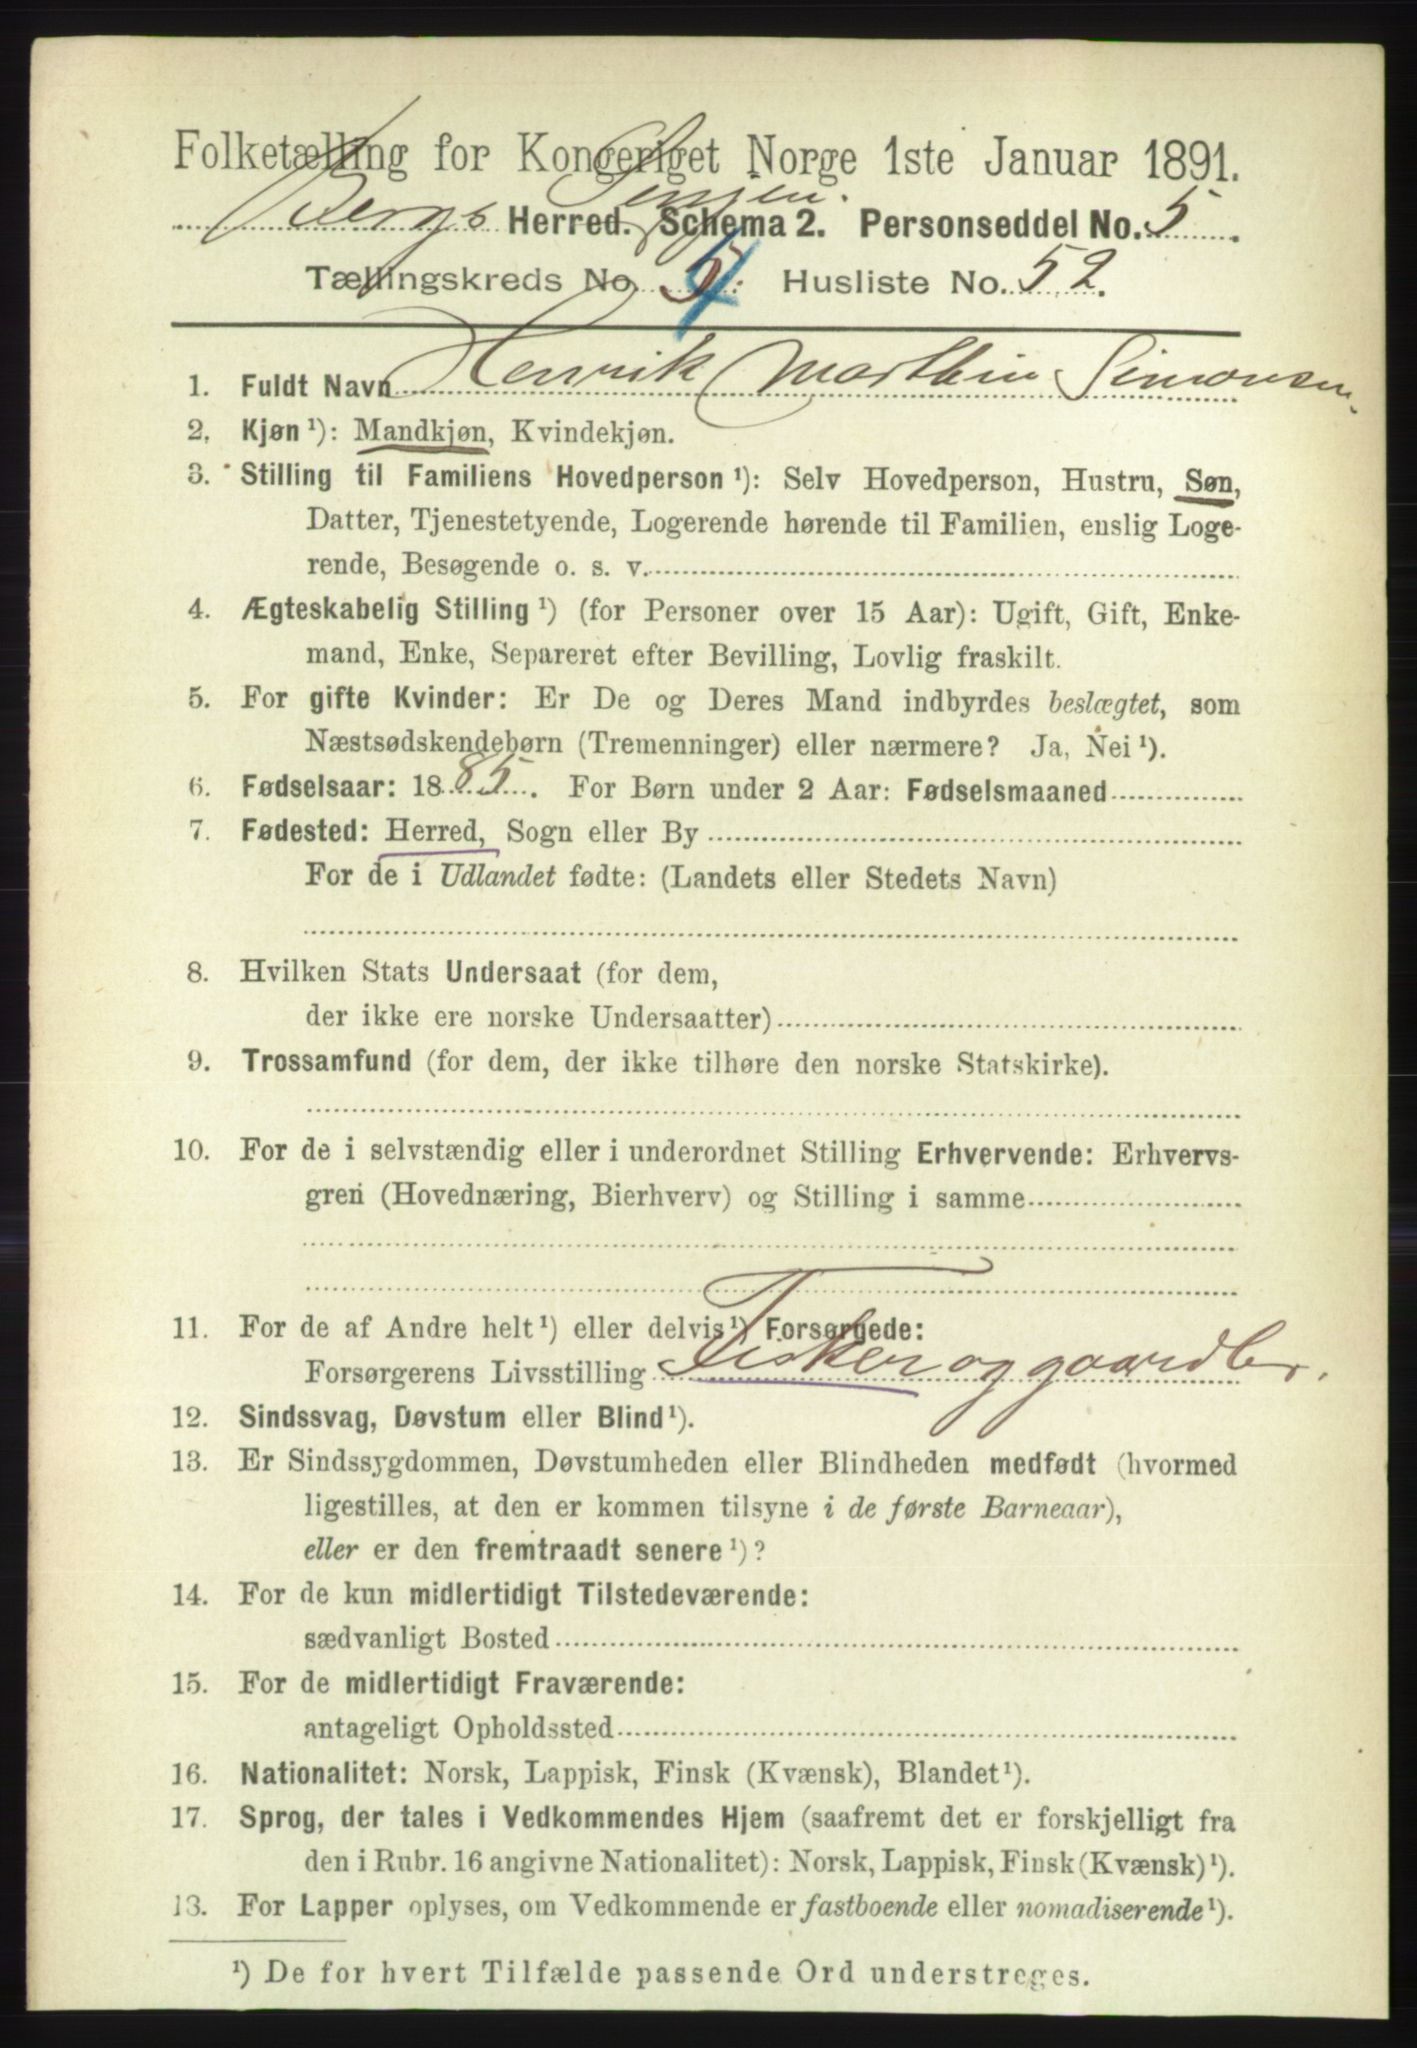 Folketælling for Kongeriget Norge 1ste Januar 1891.
Bergs Herred. Senjen. Schema 2. Personseddel No. 5.
Tællingskreds No. 5 4. Husliste No. 52.
1. Fuldt Navn Henrik Marthin Simonsen.
2. Kjøn ¹): Mandkjøn, Kvindekjøn.
3. Stilling til Familiens Hovedperson ¹): Selv Hovedperson, Hustru, Søn,
Datter, Tjenestetyende, Logerende hørende til Familien, enslig Loge-
rende, Besøgende o. s. v.
4. Ægteskabelig Stilling ¹) (for Personer over 15 Aar): Ugift, Gift, Enke-
mand, Enke, Separeret efter Bevilling, Lovlig fraskilt.
5. For gifte Kvinder: Er De og Deres Mand indbyrdes beslægtet, som
Næstsødskendebørn (Tremenninger) eller nærmere? Ja, Nei ¹).
6. Fødselsaar: 1885. For Børn under 2 Aar: Fødselsmaaned
7. Fødested: Herred, Sogn eller By
For de i Udlandet fødte: (Landets eller Stedets Navn)
8. Hvilken Stats Undersaat (for dem,
der ikke ere norske Undersaatter)
9. Trossamfund (for dem, der ikke tilhøre den norske Statskirke).
10. For de i selvstændig eller i underordnet Stilling Erhvervende: Erhvervs-
gren (Hovednæring, Bierhverv) og Stilling i samme
11. For de af Andre helt ¹) eller delvis ¹) Forsørgede:
Forsørgerens Livsstilling Fisker og gaardbr.
12. Sindssvag, Døvstum eller Blind ¹).
13. Er Sindssygdommen, Døvstumheden eller Blindheden medfødt (hvormed
ligestilles, at den er kommen tilsyne i de første Barneaar),
eller er den fremtraadt senere ¹)?
14. For de kun midlertidigt Tilstedeværende:
sædvanligt Bosted
15. For de midlertidigt Fraværende:
antageligt Opholdssted
16. Nationalitet: Norsk, Lappisk, Finsk (Kvænsk), Blandet ¹).
17. Sprog, der tales i Vedkommendes Hjem (saafremt det er forskjelligt fra
den i Rubr. 16 angivne Nationalitet): Norsk, Lappisk, Finsk (Kvænsk) ¹).
13. For Lapper oplyses, om Vedkommende er fastboende eller nomadiserende ¹).
¹) De for hvert Tilfælde passende Ord understreges.